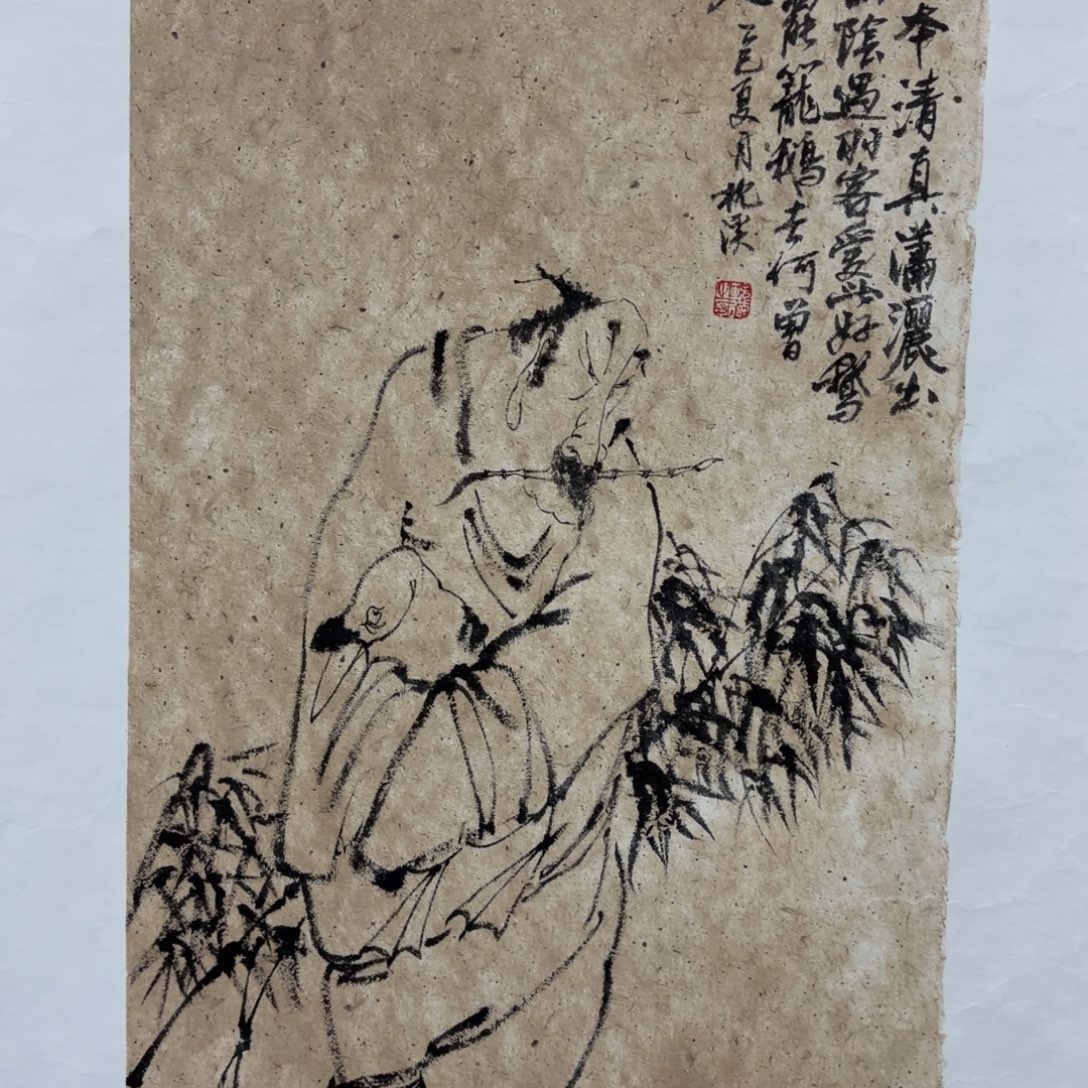 本清真瀟灑出
陰過羽客愛此好鵞
罷籠鵝去何曾
乙巳夏月枕溪